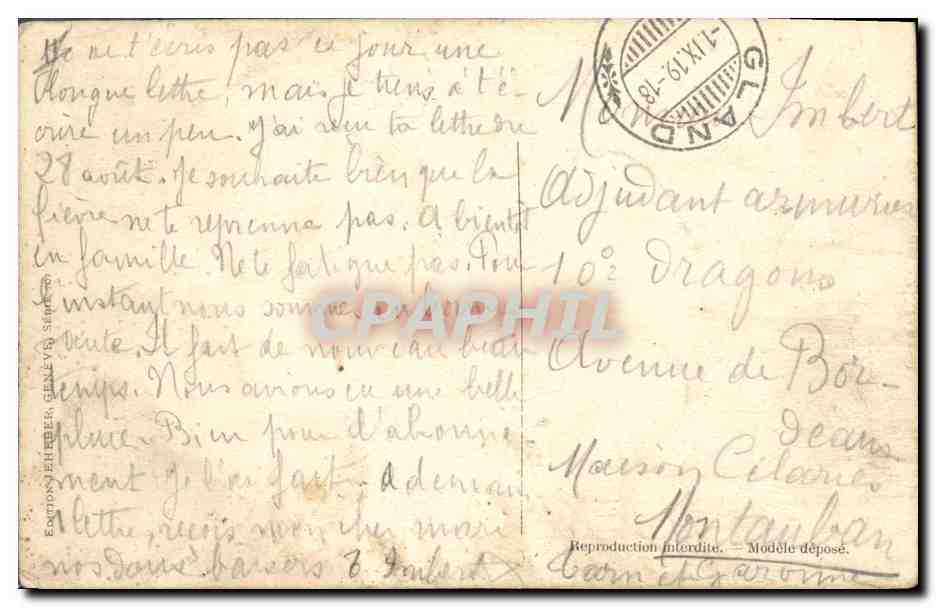 Je ne t'écris pas ce jour une
longue lettre, mais je tiens à t'é-
crire un peu. J'ai reçu ta lettre du
28 août. Je souhaite bien que la
fièvre ne te reprenna pas. A bientôt
en famille. Ne te fatigue pas. Pour
l'instant nous sommes en bonne
santé. Il fait de nouveau beau
temps. Nous avions eu une belle
pluie. Bien pour l'abonne-
ment je l'ai fait. A demain
lettre, reçois mon cher mari
nos doux baisers Imbert
GLAND
-1.IX.19.-18
Imbert
Adjudant armurier
10e Dragons
Avenue de Bor-
deaux
Maison Célariès
Montauban
Tarn et Garonne
EDITION JEHEBER, GENÈVE, SÉRIE
Reproduction interdite. — Modèle déposé.
CPAPHIL